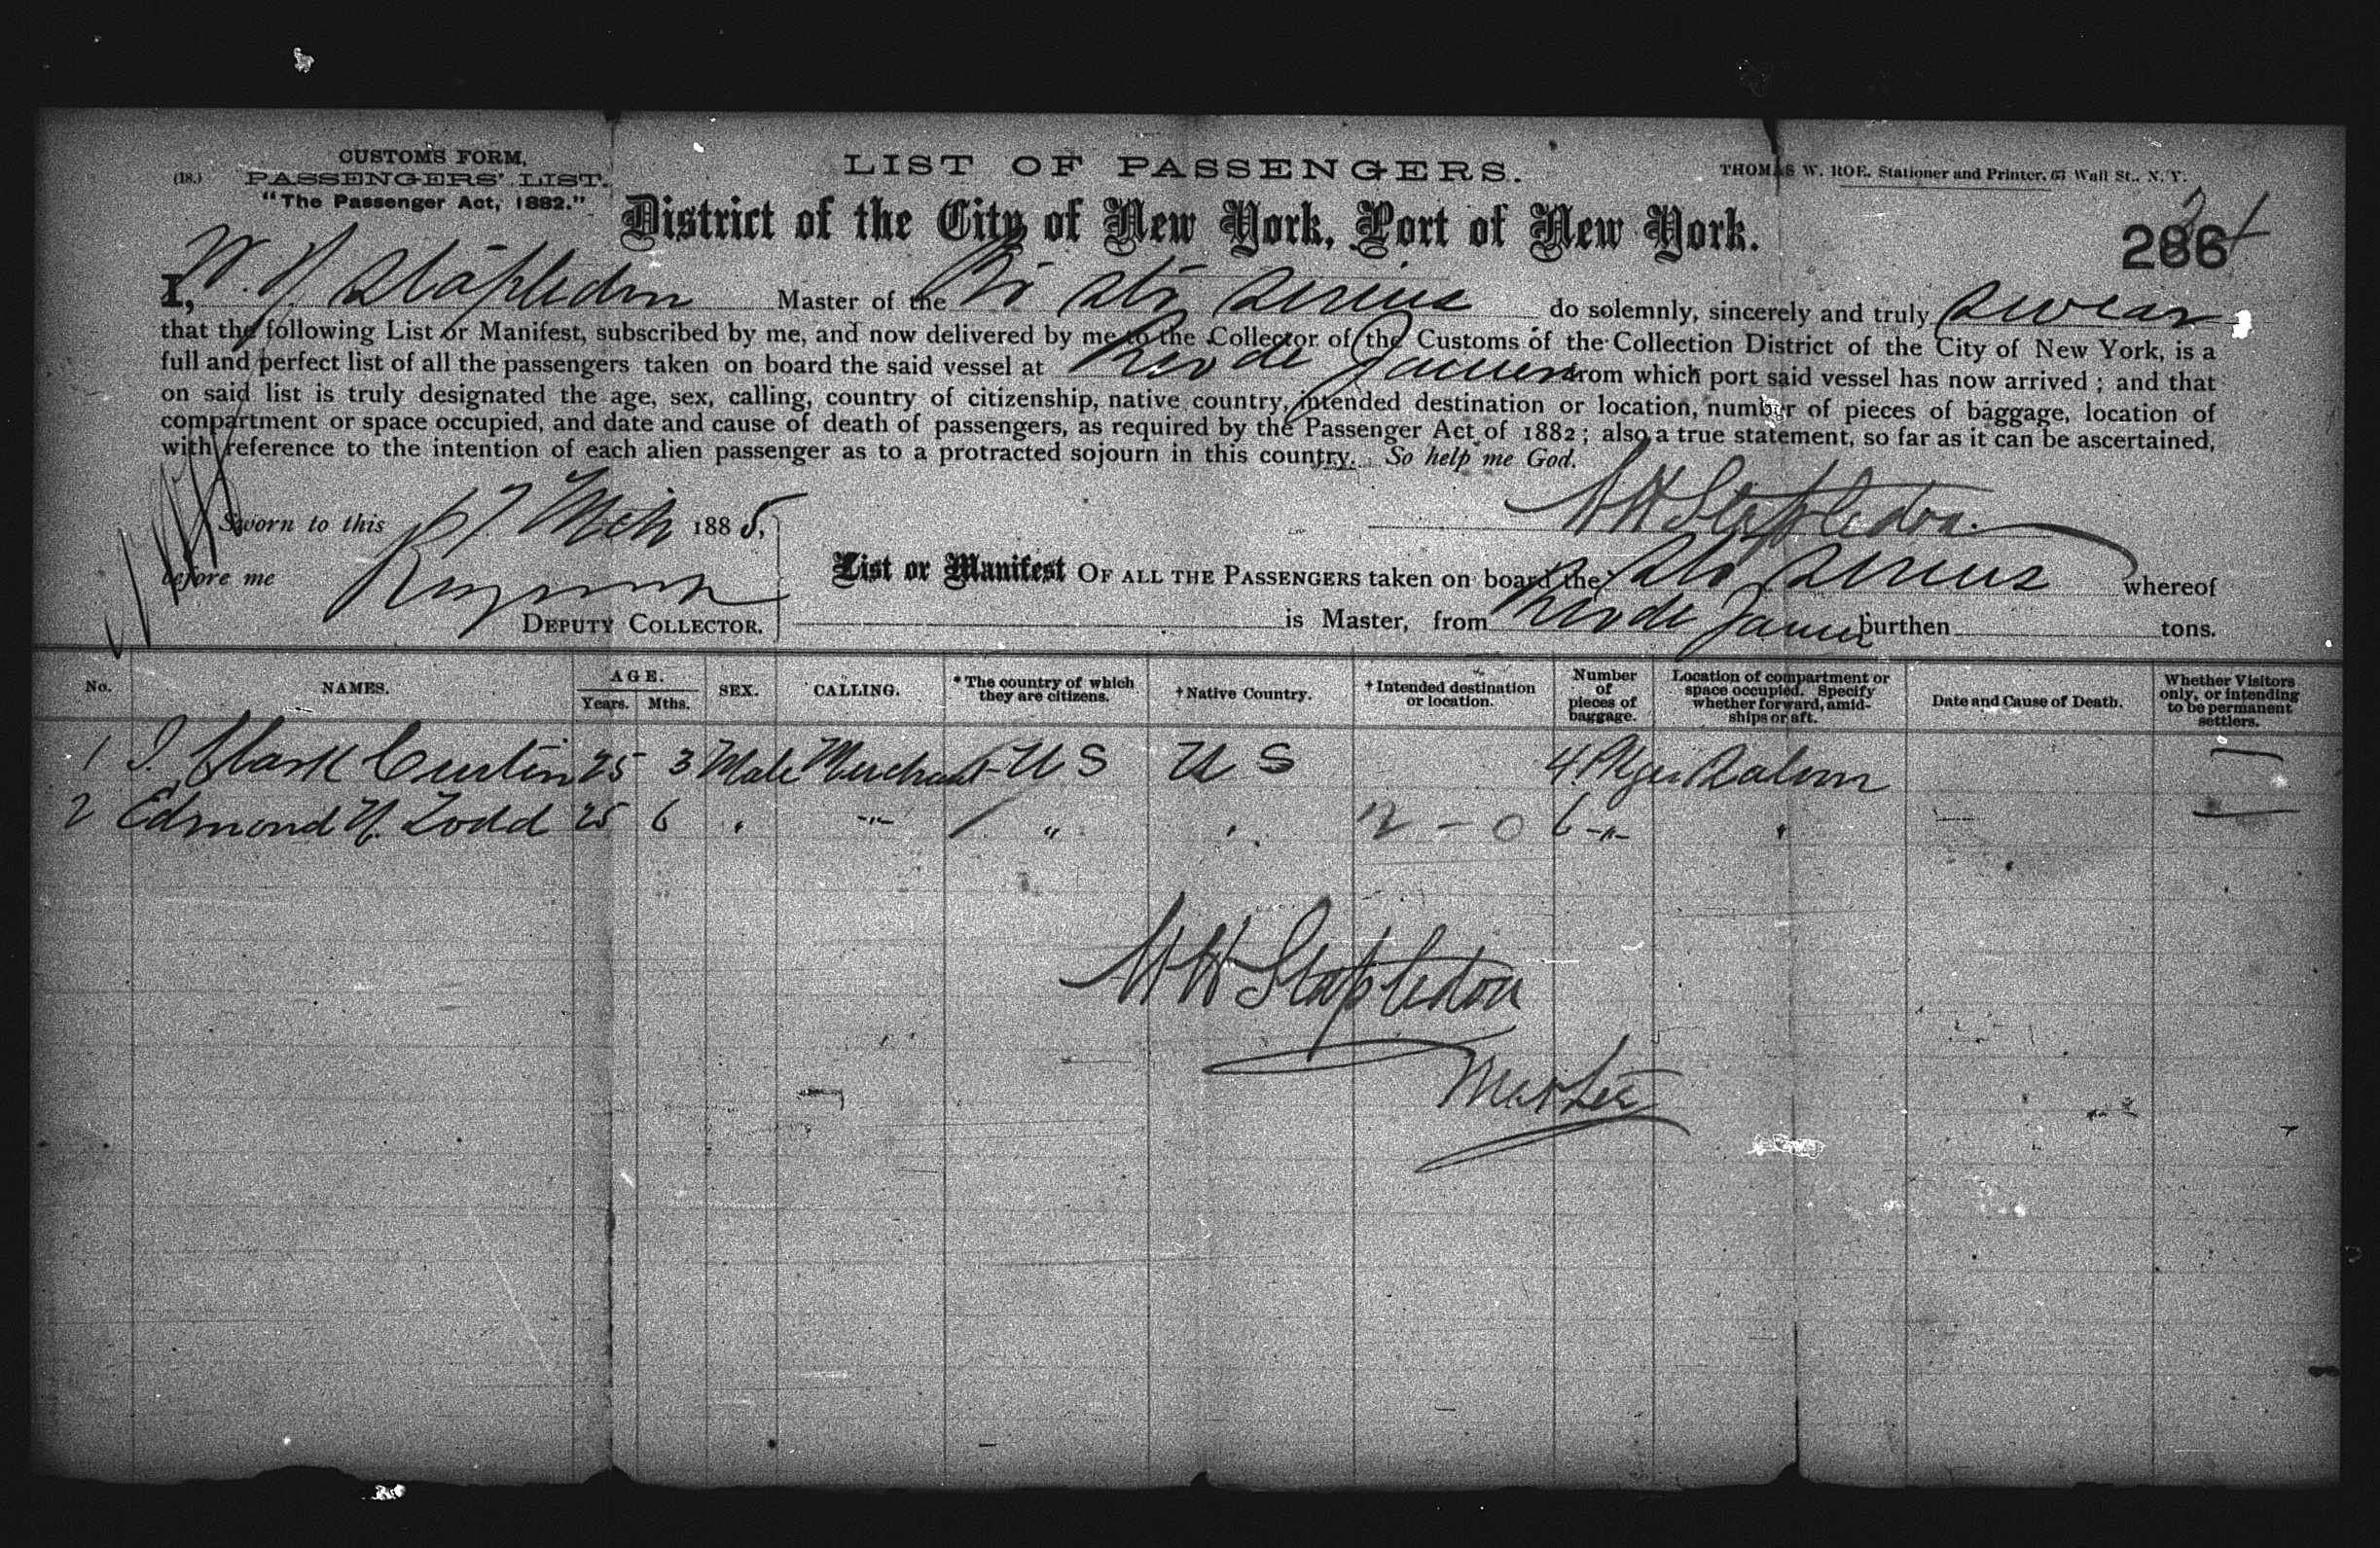 CUSTOMS FORM,
(18.) PASSENGERS' LIST.
"The Passenger Act, 1882."
LIST OF PASSENGERS.
THOMAS W. ROE, Stationer and Printer, 63 Wall St., N. Y.
District of the City of New York, Port of New York.
286
I, W. H. Stapledon Master of the Br Str Sirius do solemnly, sincerely and truly swear
that the following List or Manifest, subscribed by me, and now delivered by me to the Collector of the Customs of the Collection District of the City of New York, is a
full and perfect list of all the passengers taken on board the said vessel at Rio de Janeiro from which port said vessel has now arrived; and that
on said list is truly designated the age, sex, calling, country of citizenship, native country, intended destination or location, number of pieces of baggage, location of
compartment or space occupied, and date and cause of death of passengers, as required by the Passenger Act of 1882; also a true statement, so far as it can be ascertained,
with reference to the intention of each alien passenger as to a protracted sojourn in this country. So help me God.
W H Stapledon
Sworn to this 17 Mch 1885,
before me
DEPUTY COLLECTOR.
List or Manifest OF ALL THE PASSENGERS taken on board the Str Sirius whereof
is Master, from Rio de Janeiro burthen tons.
No. NAMES. AGE. Years. Mths. SEX. CALLING. * The country of which they are citizens. † Native Country. † Intended destination or location. Number of pieces of baggage. Location of compartment or space occupied. Specify whether forward, amidships or aft. Date and Cause of Death. Whether Visitors only, or intending to be permanent settlers.
1 Clark Curtin 25 3 Male Merchant U S U S 4 Pkgs Saloon —
2 Edmond H. Todd 25 6 " " " " 2 - 0 6 " " —
W H Stapledon
Master